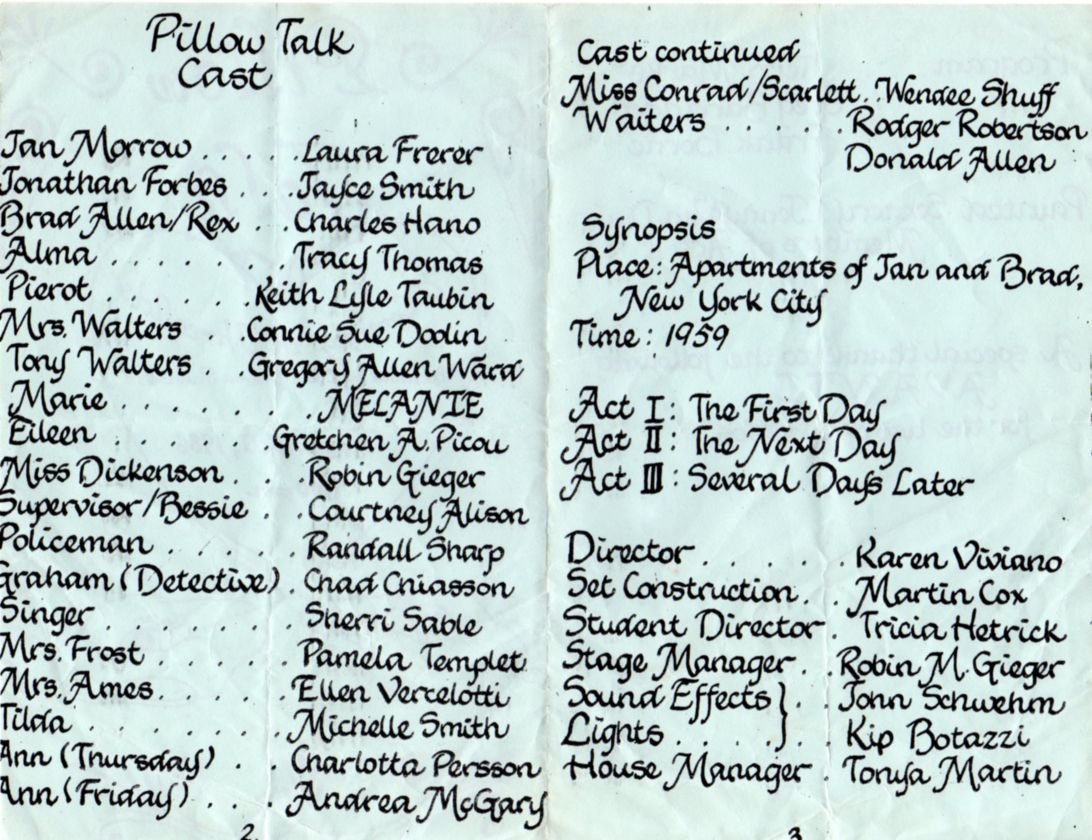 Pillow Talk
Cast
Jan Morrow . . . . . Laura Frerer
Jonathan Forbes . . . Jayce Smith
Brad Allen/Rex . . . Charles Hano
Alma . . . . . . . . Tracy Thomas
Pierot . . . . . . . Keith Lyle Taubin
Mrs. Walters . . . Connie Sue Doolin
Tony Walters . . . Gregory Allen Ward
Marie . . . . . . . MELANIE
Eileen . . . . . . Gretchen A. Picou
Miss Dickenson . . . Robin Gieger
Supervisor/Bessie . . Courtney Alison
Policeman . . . . . Randall Sharp
Graham (Detective) . Chad Chiasson
Singer . . . . . . . Sherri Sable
Mrs. Frost . . . . . Pamela Templet
Mrs. Ames . . . . . Ellen Vercelotti
Tilda . . . . . . . Michelle Smith
Ann (Thursday) . . Charlotta Persson
Ann (Friday) . . . Andrea McGary
2.
Cast continued
Miss Conrad/Scarlett . . Wendee Shuff
Waiters . . . . . Rodger Robertson
Donald Allen
Synopsis
Place: Apartments of Jan and Brad,
New York City
Time: 1959
Act I: The First Day
Act II: The Next Day
Act III: Several Days Later
Director . . . . . . Karen Viviano
Set Construction . . Martin Cox
Student Director . Tricia Hetrick
Stage Manager . . Robin M. Gieger
Sound Effects } . . John Schwehm
Lights . . . . . } . Kip Botazzi
House Manager . Tonya Martin
3